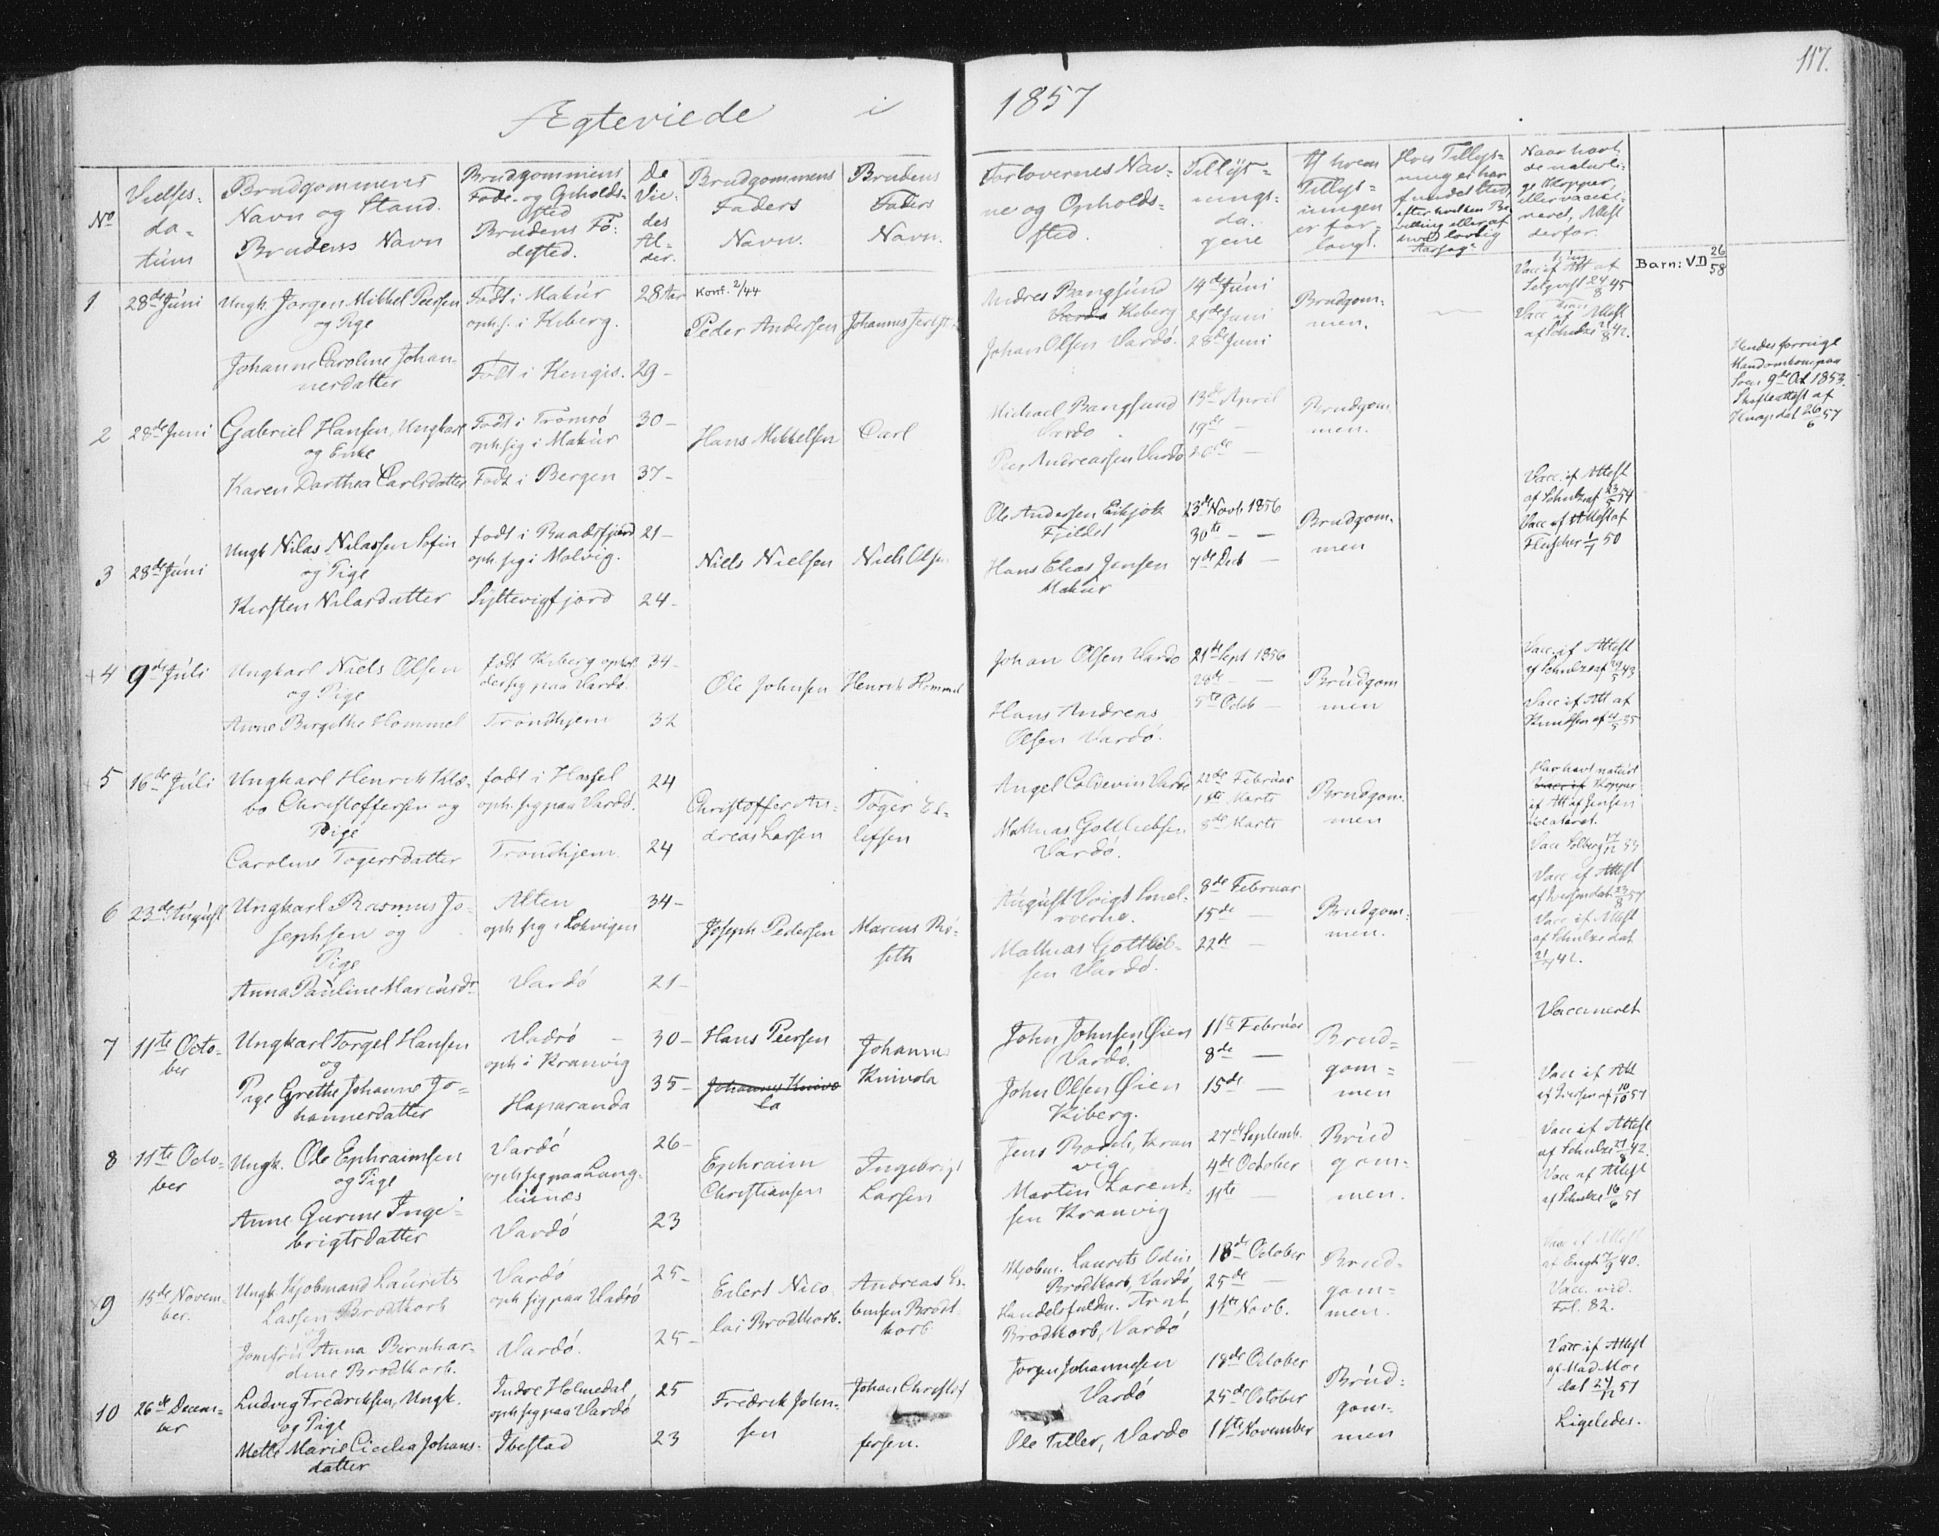 117.
Ægteviede i 1857
No
Vielses-
da-
tum
Brudgommens
Navn og Stand.
Brudens Navn
Brudgommens
Føde- og Opholds-
sted
Brudens Fø-
dested.
De
Vie-
des
Al-
der.
Brudgommens
Faders
Navn.
Brudens
Faders
Navn.
Forlovernes Nav-
ne og Opholds-
sted.
Tillys-
nings-
da-
gene
Af hvem
Tillys-
ningen
er for-
langt.
Hvis Tillys-
ning ei har
fundet Sted,
efter hvilken Be-
villing eller af
hvad lovlig
Aarsag.
Naar havt
de naturli-
ge Kopper,
eller vacci-
neret, Attest
derfor.
1
28de Juni
Ungk. Jørgen Mikkel Peersen
og Pige
Johanne Caroline Johan-
nesdatter
Født i Makur
oph. i Kiberg.
Født i Kengis.
28 Aar
29-
Konf. 2/44
Peder Andersen
Johannes
Andres Bangsund
Kiberg
Johan Olsen Vardø.
14de Juni
21de Juni
28de Juni
Brudgom-
men.
Vacc. if. Att. af
24/8 45
Vacc. if. Attest
af Schulze 21/8 42.
Barn: V.D 26/58
2
28de Juni
Gabriel Hansen, Ungkarl
og Enke
Karen Dorthea Carlsdatter
Født i Tromsø
oph. sig i Makur
Født i Bergen
30-
37-
Hans Mikkelsen
Carl
Michael Bangsund
Vardø
Peer Andreassen Vardø
13de April
19de -
26de -
Brudgom
men.
Hendes forrige
Mand omkom paa
Søen 9de Oct. 1853.
Skifteattest af
dat. 26/6 57
3
28de Juni
Ungk. Nilas Nilassen Sofin
og Pige
Kirsten Nilasdatter
født i Baadsfjord
oph. sig i Molvig.
Syltevigfjord
21-
24-
Niels Nielsen
Niels Olsen
Ole Andersen
Fjeldet
Hans Elias Jensen
Makur
23de Novb. 1856
30te - -
7de Decb -
Brudgom-
men
Vacc. if. Attest
af Schulze af 23/5 54
Vacc. if. Attest af
Fleischer 1/7 50
4
9de Juli
Ungkarl Niels Olsen
og Pige
Anne Birgithe Hommel
født Kiberg ophol-
der sig paa Vardø.
Trondhjem
34-
32
Ole Johnsen
Henrik Hommel
Johan Olsen Vardø
Hans Andreas
Olsen Vardø.
21de Sept 1856
28de - -
5te Octb -
Brudgom
men
Vacc. if. Attest
Vacc. if. Att. af
Knudsen
5
16de Juli
Ungkarl Henrik Klæ-
bo Christoffersen og
Pige
Caroline Togersdatter
født i Hassel
oph. sig paa Vardø.
Trondhjem.
24
24
Christoffer An-
dreas Larsen
Toger El-
lefsen
Angel Coldevin Vardø
Mathias Gottliebsen
Vardø.
22de Februar
1ste Marts
8de Marts
Brudgom-
men
Har havt naturl.
Kopper
if. Att. af Jensen
Vacc. Solberg
6
23de August
Ungkarl Rasmus Jo-
sephsen og
Pige
Anna Pauline Marcusdr
Alten
oph. sig i Lokvigen
Vardø
34-
21-
Joseph Pedersen
Marcus Rø-
seth
August Voigt Smel-
rverne.
Mathias Gottlieb-
sen Vardø.
8de Februar
15de -
22de -
Brudgom-
men.
Vacc. if. Attest
Vacc. if. Attest
af Schulze dat.
21/ 42.
7
11te Octo-
ber
Ungkarl Torgel Hansen
og
Pige Grethe Johanne Jo-
hannesdatter
Vadsø -
oph. i Kranvig
Haparanda
30-
35-
Hans Peersen
Johannes Knive
la
Johannes
Knivela
John Johnsen Øien
Vardø.
John Olsen Øien
Kiberg.
11te Februar
8de -
15de -
Brud-
gom-
men
Vaccineret
Vacc. if. Att.
af Iversen af 10/10 57
8
11te Octo-
ber
Ungk. Ole Ephraimsen
og Pige
Anne Gurine Inge-
brigtsdatter
Vardø
oph. sig paa Lang-
bunæs
Vardø
26-
23
Ephraim
Christiansen
Ingebrigt
Larsen
Jens Borch, Kran
vig
Martin Larent-
sen Kranvig
27de Septemb.
4de October
11te
Brud
gom-
men.
Vacc. if. Attest
af Schulze 21/8 42.
Vacc. af Attest
af Schulze 16/6 57
9
15de Novem-
ber.
Ungk. Kjøbmand Laurits
Lassen Brodtkorb
Jomfru Anna Bernhar-
dine Brodtkorb.
Vardø
oph. sig paa Vadsø
Vardø.
25-
25-
Eilert Nico
lai Brodtkorb.
Andreas Es-
bensen Brodt
korb
Kjøbm. Laurits Odin
Brodtkorb, Vardø
Handelsfuldm. Arnt
Brodtkorb, Vardø
18de October
25de -
1ste Novb.
Brud-
gom-
men.
Vacc. if. Attest
af Engh 7/9 40.
Vacc. vid.
Fol. 82.
10
26de Decem-
ber
Ludvig Fredriksen, Ungk.
og Pige
Mette Marie Cicelia Johans-
datter
Indre Holmedal,
oph. sig paa Vardø
Ibestad
25
23
Fredrik John-
sen
Johan Christof
fersen.
Jørgen Johannesen
Vardø
Ole Tiller, Vardø
18de October
25de October
1ste November
Brud-
gom-
men
Vacc. if. Attest
af Mad. Moe
dat. 24/12 57
Ligeledes.